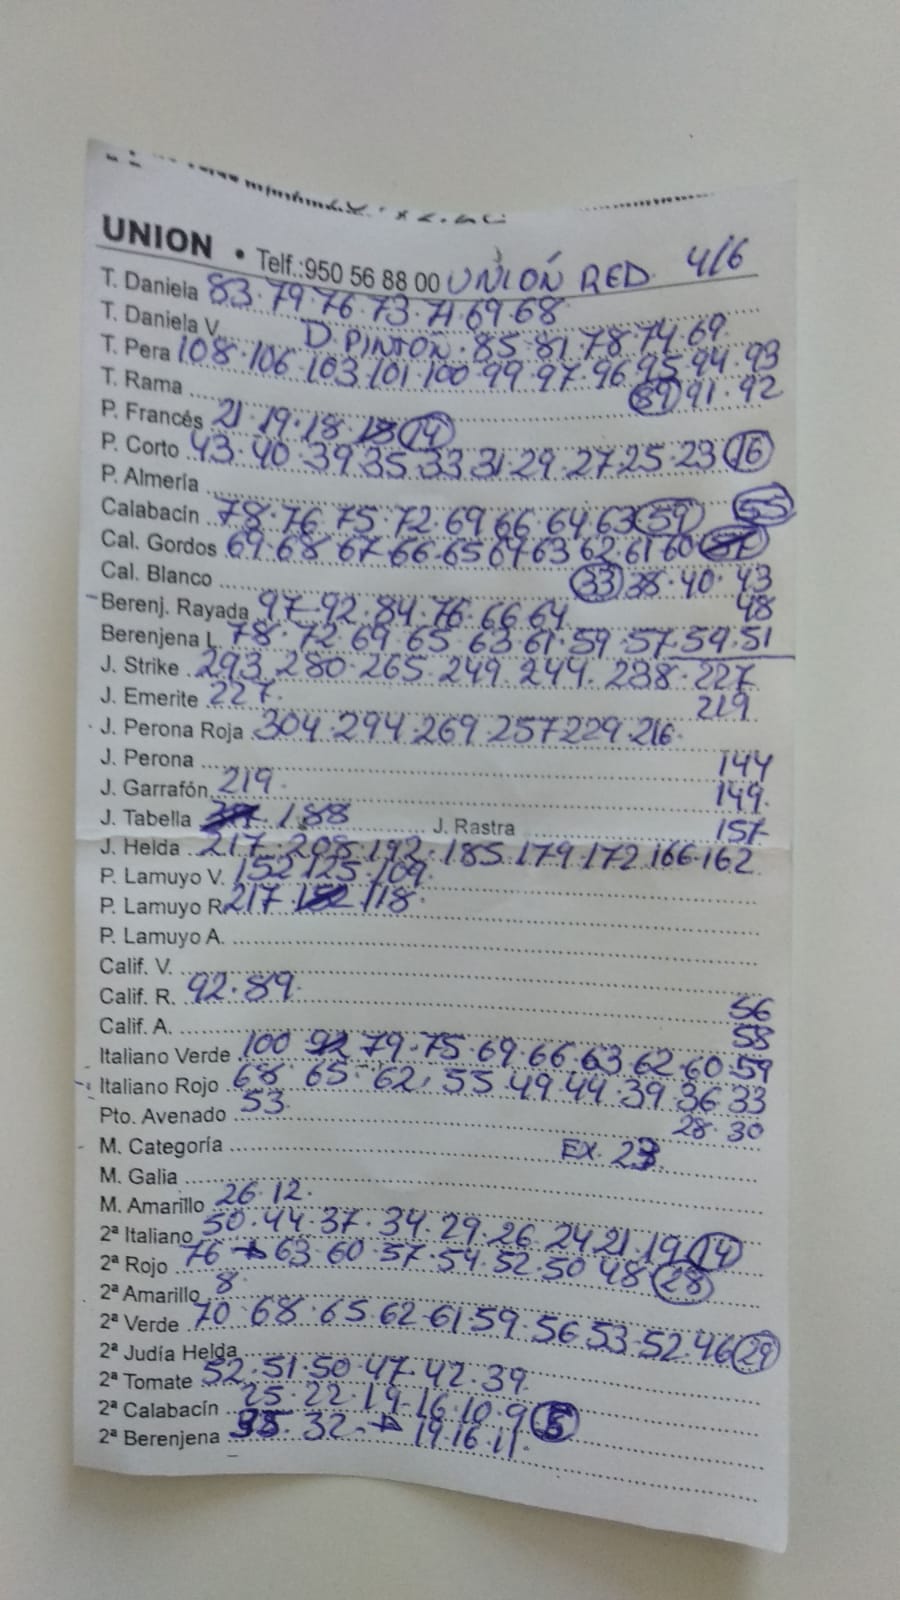 UNION • Telf.:950 56 88 00 UNIÓN RED. 4/6
T. Daniela 83·79·76·73·71·69·68
T. Daniela V. D. PINTON·85·81·78·74·69
T. Pera 108·106·103·101·100·99·97·96·95·94·93
T. Rama 89 91·92
P. Francés 21·19·18· 14
P. Corto 43·40·39·35·33·31·29·27·25·23 16
P. Almería 55
Calabacín 78·76·75·72·69·66·64·63 59
Cal. Gordos 69·68·67·66·65·64·63·62·61·60
Cal. Blanco 33 38·40·43
Berenj. Rayada 97·92·84·76·66·64 48
Berenjena L 78·72·69·65·63·61·59·57·54·51
J. Strike 293·280·265·249·244·238·227
J. Emerite 227 219
J. Perona Roja 304·294·269·257·229·216
J. Perona 144
J. Garrafón 219 149
J. Tabella 188 J. Rastra 157
J. Helda 217·208·192·185·179·172·166·162
P. Lamuyo V. 152·125·109
P. Lamuyo R. 217· 118
P. Lamuyo A.
Calif. V.
Calif. R. 92·89 56
Calif. A. 58
Italiano Verde 100 92 79·75·69·66·63·62·60·59
Italiano Rojo 68·65·62·55·49·44·39·36·33
Pto. Avenado 53 28·30
M. Categoría EX. 23
M. Galia
M. Amarillo 26·12
2ª Italiano 50·44·37·34·29·26·24·21·19 14
2ª Rojo 76 → 63·60·57·54·52·50·48 28
2ª Amarillo 8
2ª Verde 70·68·65·62·61·59·56·53·52·46 29
2ª Judía Helda
2ª Tomate 52·51·50·47·42·39
2ª Calabacín 25·22·19·16·10·9 5
2ª Berenjena 35·32 → 19·16·11